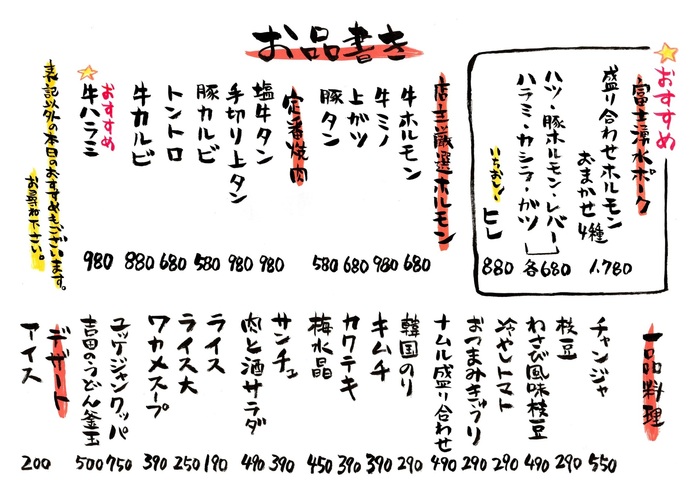 お品書き
おすすめ
富士湧水ポーク
盛り合わせホルモン
おまかせ4種 1,780
ハツ・豚ホルモン・レバー
ハラミ・カシラ・ガツ 各680
いちおし! ヒレ 880
店主厳選ホルモン
牛ホルモン 680
牛ミノ 980
上ガツ 680
豚タン 580
定番焼肉
塩牛タン 980
手切り上タン 980
豚カルビ 580
トントロ 680
牛カルビ 880
おすすめ
牛ハラミ 980
表記以外の本日のおすすめもございます。
お尋ね下さい。
一品料理
チャンジャ 550
枝豆 290
わさび風味枝豆 490
冷やしトマト 290
おつまみきゅうり 290
ナムル盛り合わせ 490
韓国のり 290
キムチ 390
カクテキ 390
梅水晶 450
サンチュ 390
肉と酒サラダ 490
ライス 190
ライス大 250
ワカメスープ 390
ユッケジャンクッパ 750
吉田のうどん釜玉 500
デザート
アイス 200